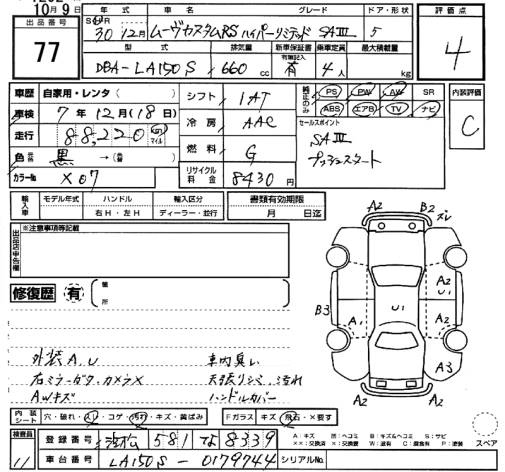 10月9日
出品番号
77
年式 車名 グレード ドア・形状
30 12月 ムーヴカスタムRS ハイパーリミテッド SAⅢ 5
型式 排気量 新車保証書 乗車定員 最大積載量
有無記入
DBA-LA150S 660 cc 有 4人 kg
評価点
4
車歴 自家用・レンタ
車検 7年12月(18日)
走行 88,220
色 黒
カラーNo X07
シフト IAT
冷房 AAC
燃料 G
リサイクル料金 8430円
PS PW AW SR
ABS エアB TV ナビ
セールスポイント
SAⅢ
プッシュスタート
内装評価
C
輸入車
モデル年式 ハンドル 輸入区分 書類有効期限
右H・左H ディーラー・並行 月 日迄
出品店申告欄
※注意事項等記載
修復歴 有 箇所
外装A,U 車内臭い
右ミラーガタ・カメラX 天張りシミ、汚れ
AWキズ ハンドルカバー
A2 B2 ズレ
A2
U1
B3 U1
A1 A2
A2 A3
内装シート 穴・破れ・スレ・コゲ・汚れ・キズ・黄ばみ Fガラス キズ・飛石・X要す
スペア
検査員 11
登録番号 浜松 581 な 8339
車台番号 LA150S-0179744 シリアルNo.
A：キズ 所：ヘコミ B：キズ&ヘコミ S：サビ
XX：交換済 X：要交換 W：波有 C：腐食有 P：塗装